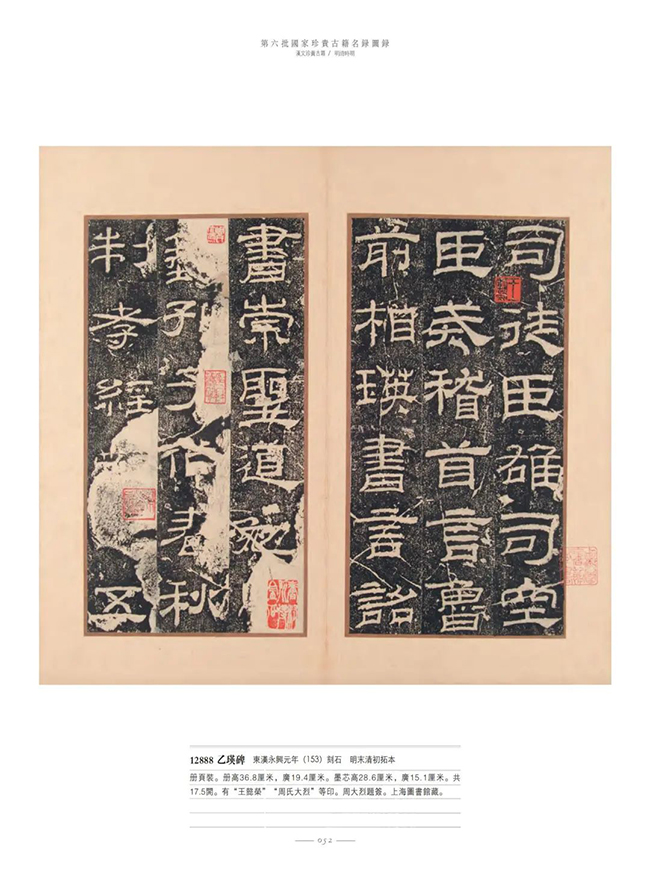 第六批國家珍貴古籍名録圖録
漢文珍貴古籍 / 明清時期
司徒臣雄司空
臣戒稽首言魯
前相瑛書言詔
書崇聖道勉
藝孔子作春秋
制孝經 五
12888 乙瑛碑 東漢永興元年（153）刻石 明末清初拓本
册頁裝。册高36.8厘米，廣19.4厘米。墨芯高28.6厘米，廣15.1厘米。共
17.5開。有“王懿榮”“周氏大烈”等印。周大烈題簽。上海圖書館藏。
032